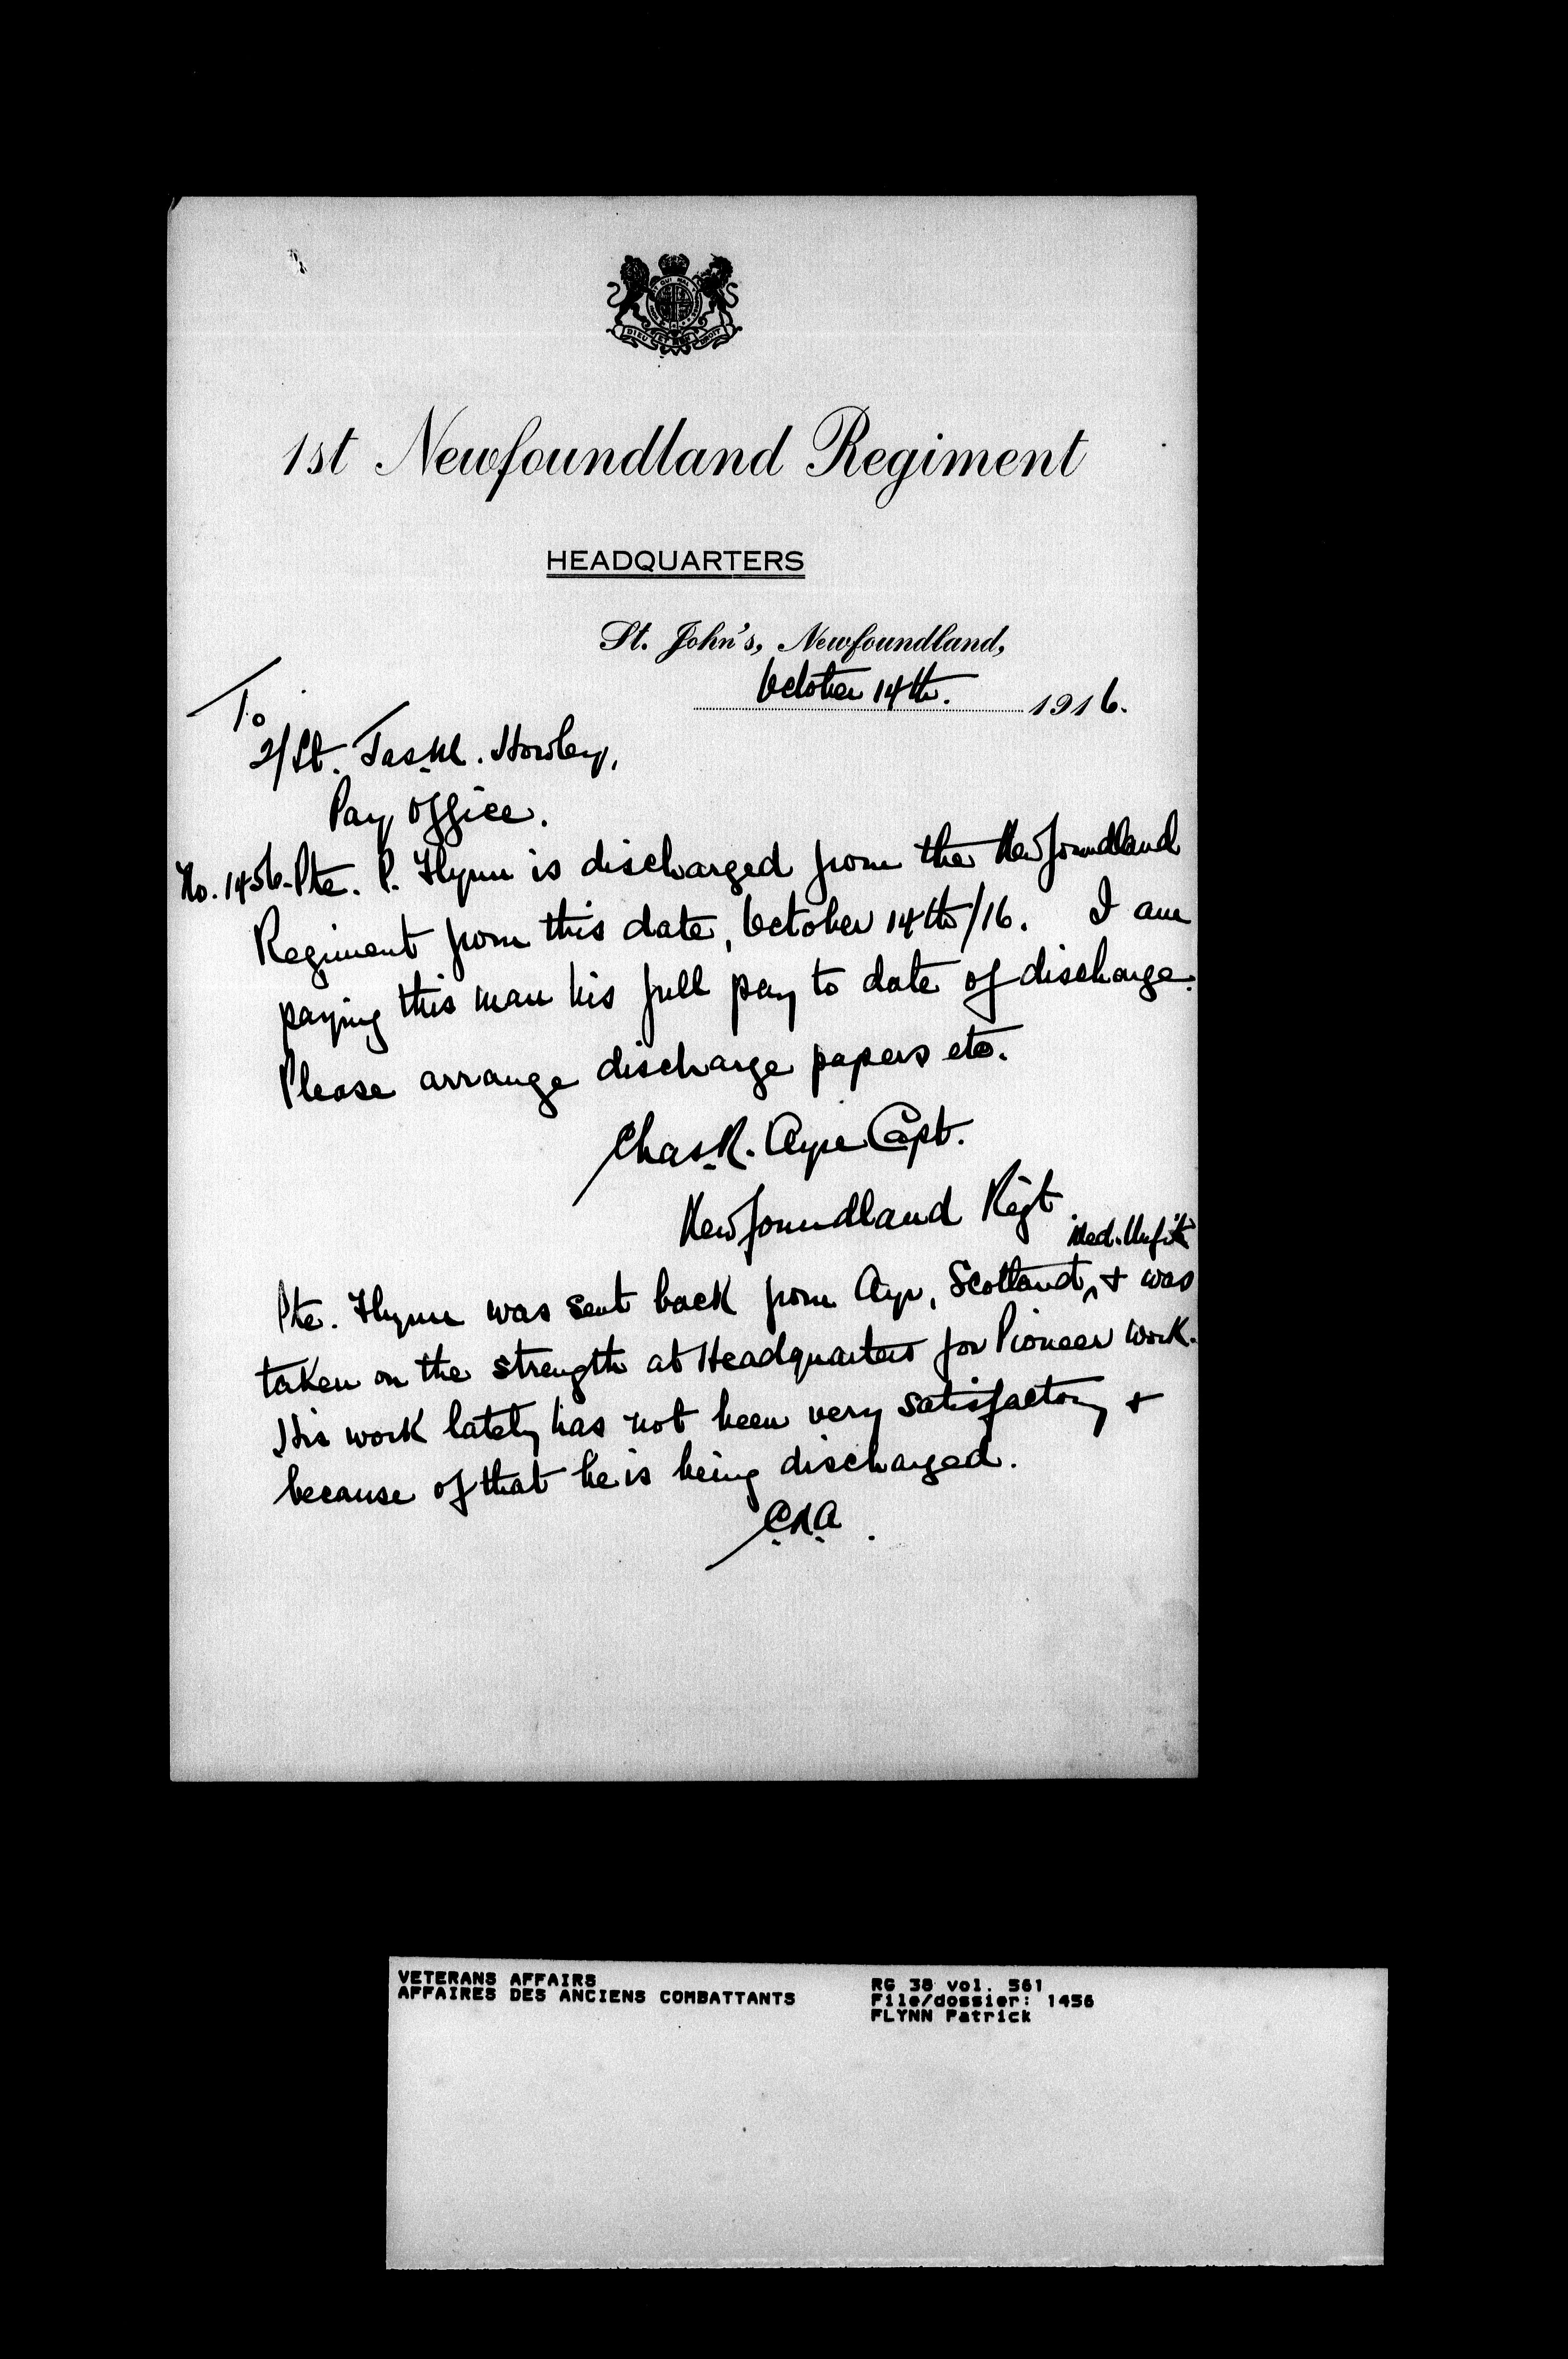 DIEU ET MON DROIT
1st Newfoundland Regiment
HEADQUARTERS
St. John's, Newfoundland,
October 14th. 1916.
To
2/Lt. Jas. M. Howley,
Pay Office.
No. 1456-Pte. P. Flynn is discharged from the Newfoundland
Regiment from this date, October 14th/16. I am
paying this man his full pay to date of discharge.
Please arrange discharge papers etc.
Chas. R. Ayre Capt.
Newfoundland Regt.
Med. Unfit
Pte. Flynn was sent back from Ayr, Scotland, ^ & was
taken on the strength at Headquarters for Pioneer work.
His work lately has not been very satisfactory &
because of that he is being discharged.
C.R.A.
VETERANS AFFAIRS
AFFAIRES DES ANCIENS COMBATTANTS
RG 38 vol. 561
File/dossier: 1456
FLYNN Patrick